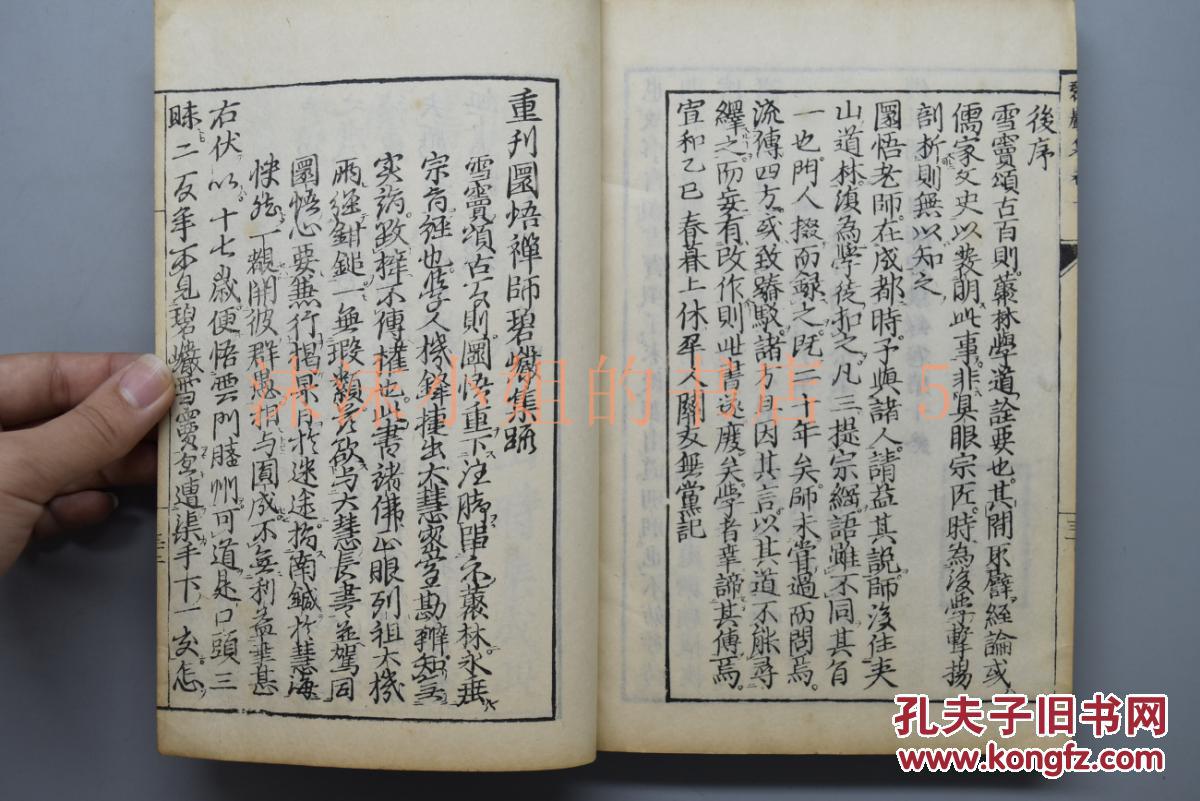 後序
雪竇頌古百則叢林學道詮要也其間取譬經論或
儒家文史以發明此事非具眼宗匠時為後學擊揚
剖析則無以知之
圜悟老師在成都時予與諸人請益其說師後住夾
山道林復為學徒扣之凡三提宗綱語雖不同其旨
一也門人掇而録之既二十年矣師未嘗過而問焉
流傳四方或致踳駁諸方且因其言以其道不能尋
繹之而妄有改作則此書遂廢矣學者幸諦其傳焉
宣和乙巳春暮上休 人關友無黨記
重刊圜悟禪師碧巖集疏
雪竇頌古百則圜悟重下注脚單示叢林永垂
宗旨經也學人機鋒捷出大慧密室勘辨知
實詭致棒不傳權也此書諸佛心眼列祖大機
兩經鉗鎚一無瑕纇今欲与大慧長書並駕同
圜悟心要兼行揭杲日於迷途指南鍼於慧海
快然一覩開彼群愚相与圓成不無利益者甚
右伏以十七歲便悟雲門臘州可道是口頭三
昧二 年不見碧巖雪竇 遭渠手下一 怎
沫沫小姐的书店 5
孔夫子旧书网
www.kongfz.com